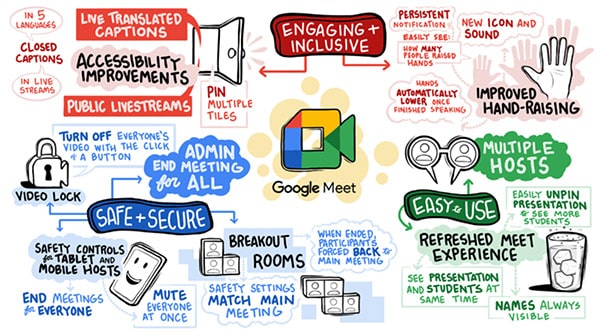 IN 5
LANGUAGES
CLOSED
CAPTIONS
IN LIVE
STREAMS
LIVE TRANSLATED
CAPTIONS
ACCESSIBILITY
IMPROVEMENTS
PUBLIC LIVESTREAMS
PIN
MULTIPLE
TILES
ENGAGING +
INCLUSIVE
PERSISTENT
NOTIFICATION
EASILY SEE:
HOW MANY
PEOPLE RAISED
HANDS
NEW ICON AND
SOUND
HANDS
AUTOMATICALLY
LOWER ONCE
FINISHED SPEAKING
IMPROVED
HAND-RAISING
Google Meet
TURN OFF EVERYONE'S
VIDEO WITH THE CLICK
of A BUTTON
VIDEO LOCK
ADMIN
END MEETING
for ALL
SAFE + SECURE
SAFETY CONTROLS
for TABLET AND
MOBILE HOSTS
END MEETINGS for
EVERYONE
MUTE
EVERYONE
AT ONCE
BREAKOUT
ROOMS
WHEN ENDED,
PARTICIPANTS
FORCED BACK to
MAIN MEETING
SAFETY SETTINGS
MATCH MAIN
MEETING
MULTIPLE
HOSTS
EASY to USE
EASILY UNPIN
PRESENTATION
to SEE MORE
STUDENTS
REFRESHED MEET
EXPERIENCE
SEE PRESENTATION
AND STUDENTS AT
SAME TIME
NAMES ALWAYS
VISIBLE